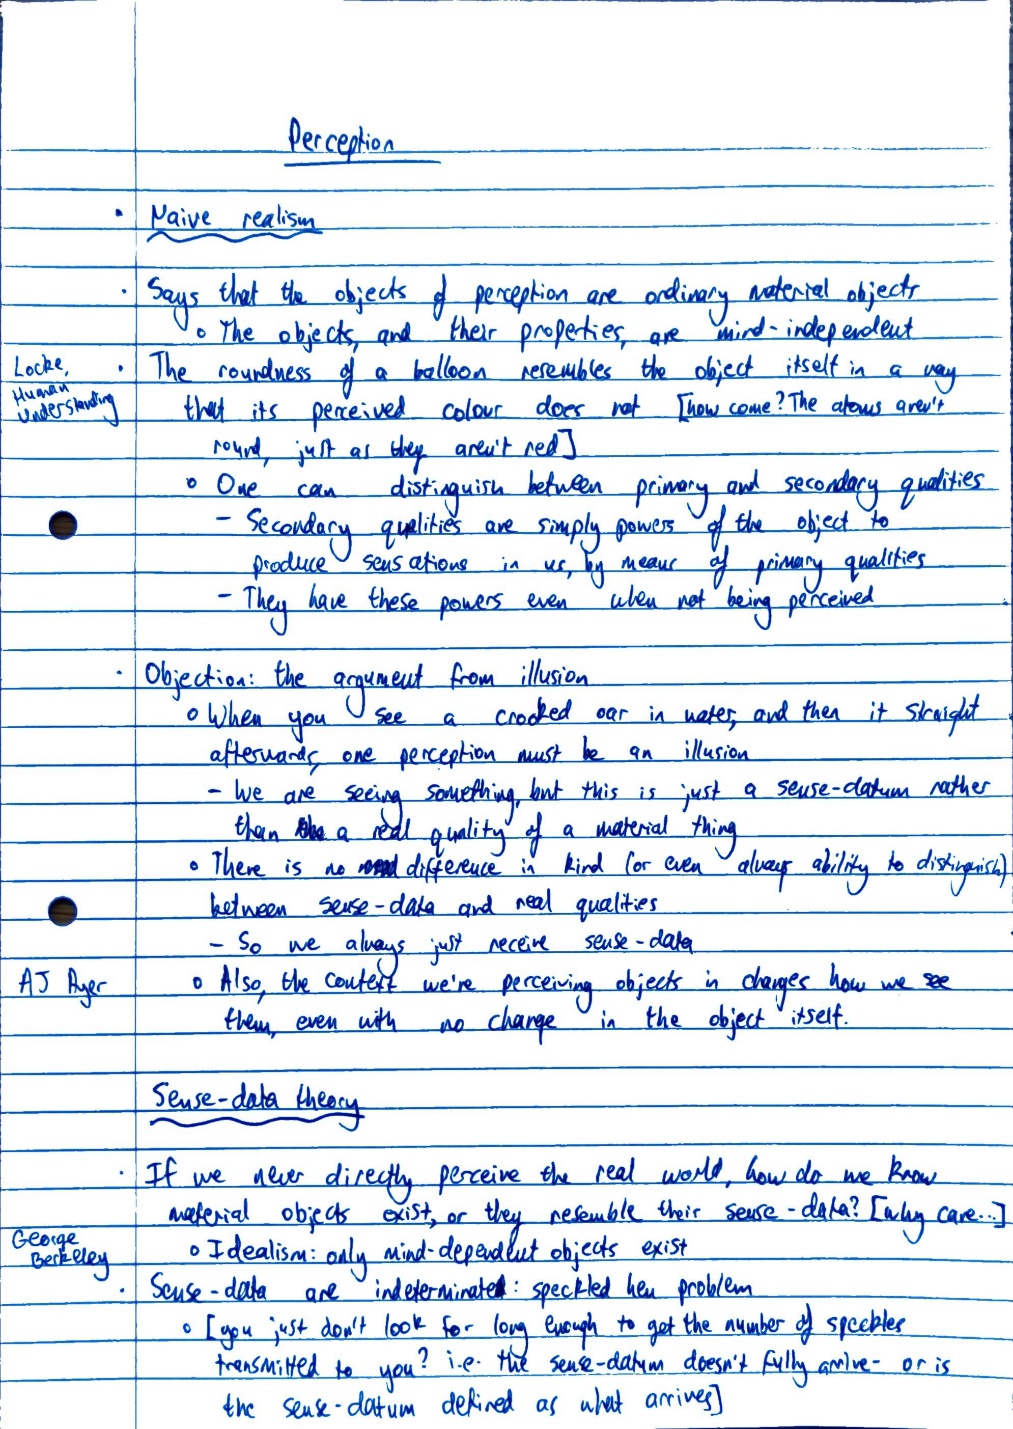 Perception
• Naive realism
• Says that the objects of perception are ordinary material objects
o The objects, and their properties, are mind-independent
Locke,
Human
Understanding
• The roundness of a balloon resembles the object itself in a way
that its perceived colour does not [how come? The atoms aren't
round, just as they aren't red]
o One can distinguish between primary and secondary qualities
- Secondary qualities are simply powers of the object to
produce sensations in us, by means of primary qualities
- They have these powers even when not being perceived
• Objection: the argument from illusion
o When you see a crooked oar in water, and then it straight
afterwards, one perception must be an illusion
- We are seeing something, but this is just a sense-datum rather
than a real quality of a material thing
o There is no difference in kind (or even always ability to distinguish)
between sense-data and real qualities
- So we always just receive sense-data
AJ Ayer
o Also, the context we're perceiving objects in changes how we see
them, even with no change in the object itself.
Sense-data theory
• If we never directly perceive the real world, how do we know
material objects exist, or they resemble their sense-data? [why care...]
George
Berkeley
o Idealism: only mind-dependent objects exist
• Sense-data are indeterminate: speckled hen problem
o [you just don't look for long enough to get the number of speckles
transmitted to you? i.e. the sense-datum doesn't fully arrive - or is
the sense-datum defined as what arrives]